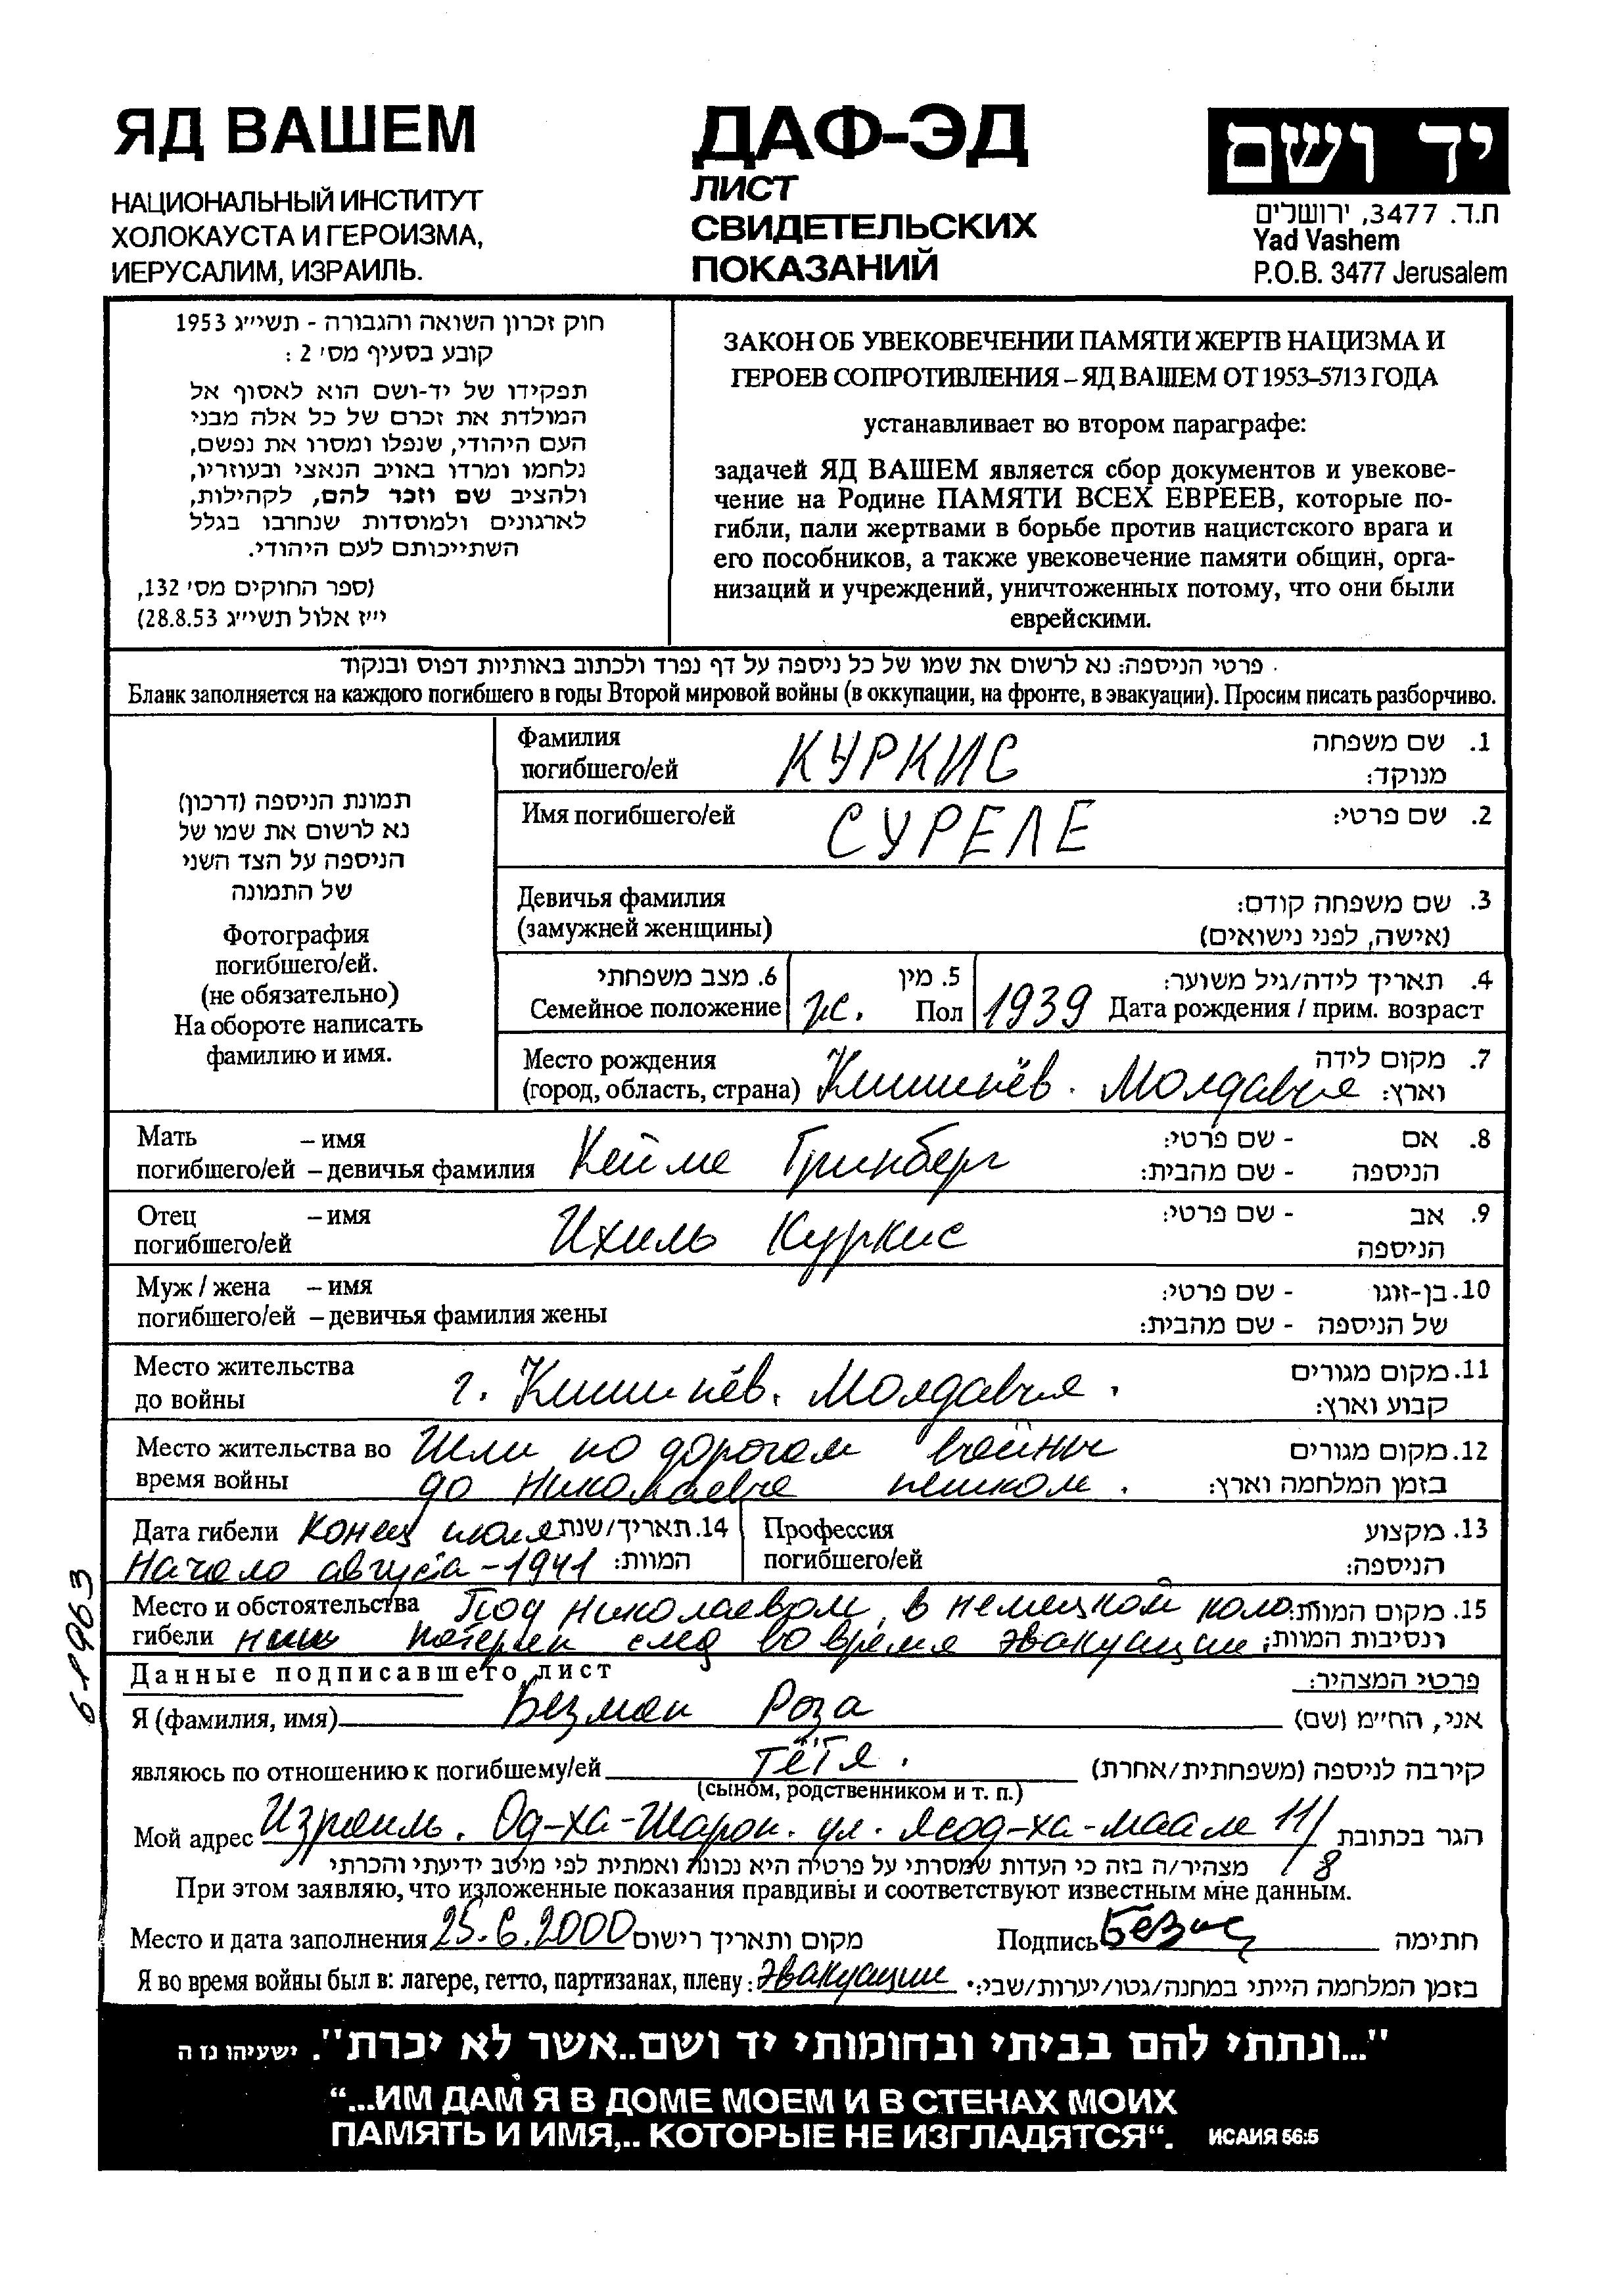 ЯД ВАШЕМ
НАЦИОНАЛЬНЫЙ ИНСТИТУТ
ХОЛОКАУСТА И ГЕРОИЗМА,
ИЕРУСАЛИМ, ИЗРАИЛЬ.
ДАФ-ЭД
ЛИСТ
СВИДЕТЕЛЬСКИХ
ПОКАЗАНИЙ
יד ושם
ת.ד. 3477, ירושלים
Yad Vashem
P.O.B. 3477 Jerusalem
חוק זכרון השואה והגבורה - תשי״ג 1953
קובע בסעיף מס׳ 2 :
תפקידו של יד-ושם הוא לאסוף אל
המולדת את זכרם של כל אלה מבני
העם היהודי, שנפלו ומסרו את נפשם,
נלחמו ומרדו באויב הנאצי ובעוזריו,
ולהציב שם וזכר להם, לקהילות,
לארגונים ולמוסדות שנחרבו בגלל
השתייכותם לעם היהודי.
(ספר החוקים מס׳ 132,
י״ז אלול תשי״ג 28.8.53)
ЗАКОН ОБ УВЕКОВЕЧЕНИИ ПАМЯТИ ЖЕРТВ НАЦИЗМА И
ГЕРОЕВ СОПРОТИВЛЕНИЯ – ЯД ВАШЕМ ОТ 1953–5713 ГОДА
устанавливает во втором параграфе:
задачей ЯД ВАШЕМ является сбор документов и увекове-
чение на Родине ПАМЯТИ ВСЕХ ЕВРЕЕВ, которые по-
гибли, пали жертвами в борьбе против нацистского врага и
его пособников, а также увековечение памяти общин, орга-
низаций и учреждений, уничтоженных потому, что они были
еврейскими.
פרטי הניספה: נא לרשום את שמו של כל ניספה על דף נפרד ולכתוב באותיות דפוס ובנקוד
Бланк заполняется на каждого погибшего в годы Второй мировой войны (в оккупации, на фронте, в эвакуации). Просим писать разборчиво.
תמונת הניספה (דרכון)
נא לרשום את שמו של
הניספה על הצד השני
של התמונה
Фотография
погибшего/ей.
(не обязательно)
На обороте написать
фамилию и имя.
Фамилия КУРКИС 1. שם משפחה
погибшего/ей מנוקד:
Имя погибшего/ей СУРЕЛЕ 2. שם פרטי:
Девичья фамилия 3. שם משפחה קודם:
(замужней женщины) (אישה, לפני נישואים)
6. מצב משפחתי 5. מין 4. תאריך לידה/גיל משוער:
Семейное положение ж. Пол 1939 Дата рождения / прим. возраст
Место рождения 7. מקום לידה
(город, область, страна) Кишинёв. Молдавия וארץ:
Мать – имя Кейле Гринберг 8. אם - שם פרטי:
погибшего/ей – девичья фамилия הניספה - שם מהבית:
Отец – имя Ихиль Куркис 9. אב - שם פרטי:
погибшего/ей הניספה
Муж / жена – имя 10. בן-זוגו - שם פרטי:
погибшего/ей – девичья фамилия жены של הניספה - שם מהבית:
Место жительства 11. מקום מגורים
до войны г. Кишинёв. Молдавия. קבוע וארץ:
Место жительства во Шли по дорогам войны 12. מקום מגורים
время войны до Николаева пешком. בזמן המלחמה וארץ:
Дата гибели Конец июля 14. תאריך/שנת
Начало августа – 1941 המוות:
Профессия 13. מקצוע
погибшего/ей הניספה:
Место и обстоятельства Под Николаевом, в немецком коло 15. מקום המוות
гибели потерян след во время эвакуации ונסיבות המוות:
61963
Данные подписавшего лист פרטי המצהיר:
Я (фамилия, имя) Безман Роза אני, הח״מ (שם)
являюсь по отношению к погибшему/ей тётя. קירבה לניספה (משפחתית/אחרת)
(сыном, родственником и т. п.)
Мой адрес Израиль. Од-ха-Шарон. ул. Ясод-ха-маале 11/8 הגר בכתובת
מצהיר/ה בזה כי העדות שמסרתי על פרטיה היא נכונה ואמתית לפי מיטב ידיעתי והכרתי
При этом заявляю, что изложенные показания правдивы и соответствуют известным мне данным.
Место и дата заполнения 25.6.2000 מקום ותאריך רישום Подпись חתימה
Я во время войны был в: лагере, гетто, партизанах, плену: эвакуации בזמן המלחמה הייתי במחנה/גטו/יערות/שבי:
"...ונתתי להם בביתי ובחומותי יד ושם..אשר לא יכרת". ישעיהו נז ה
“...ИМ ДАМ Я В ДОМЕ МОЕМ И В СТЕНАХ МОИХ
ПАМЯТЬ И ИМЯ,.. КОТОРЫЕ НЕ ИЗГЛАДЯТСЯ“. ИСАИЯ 56:5